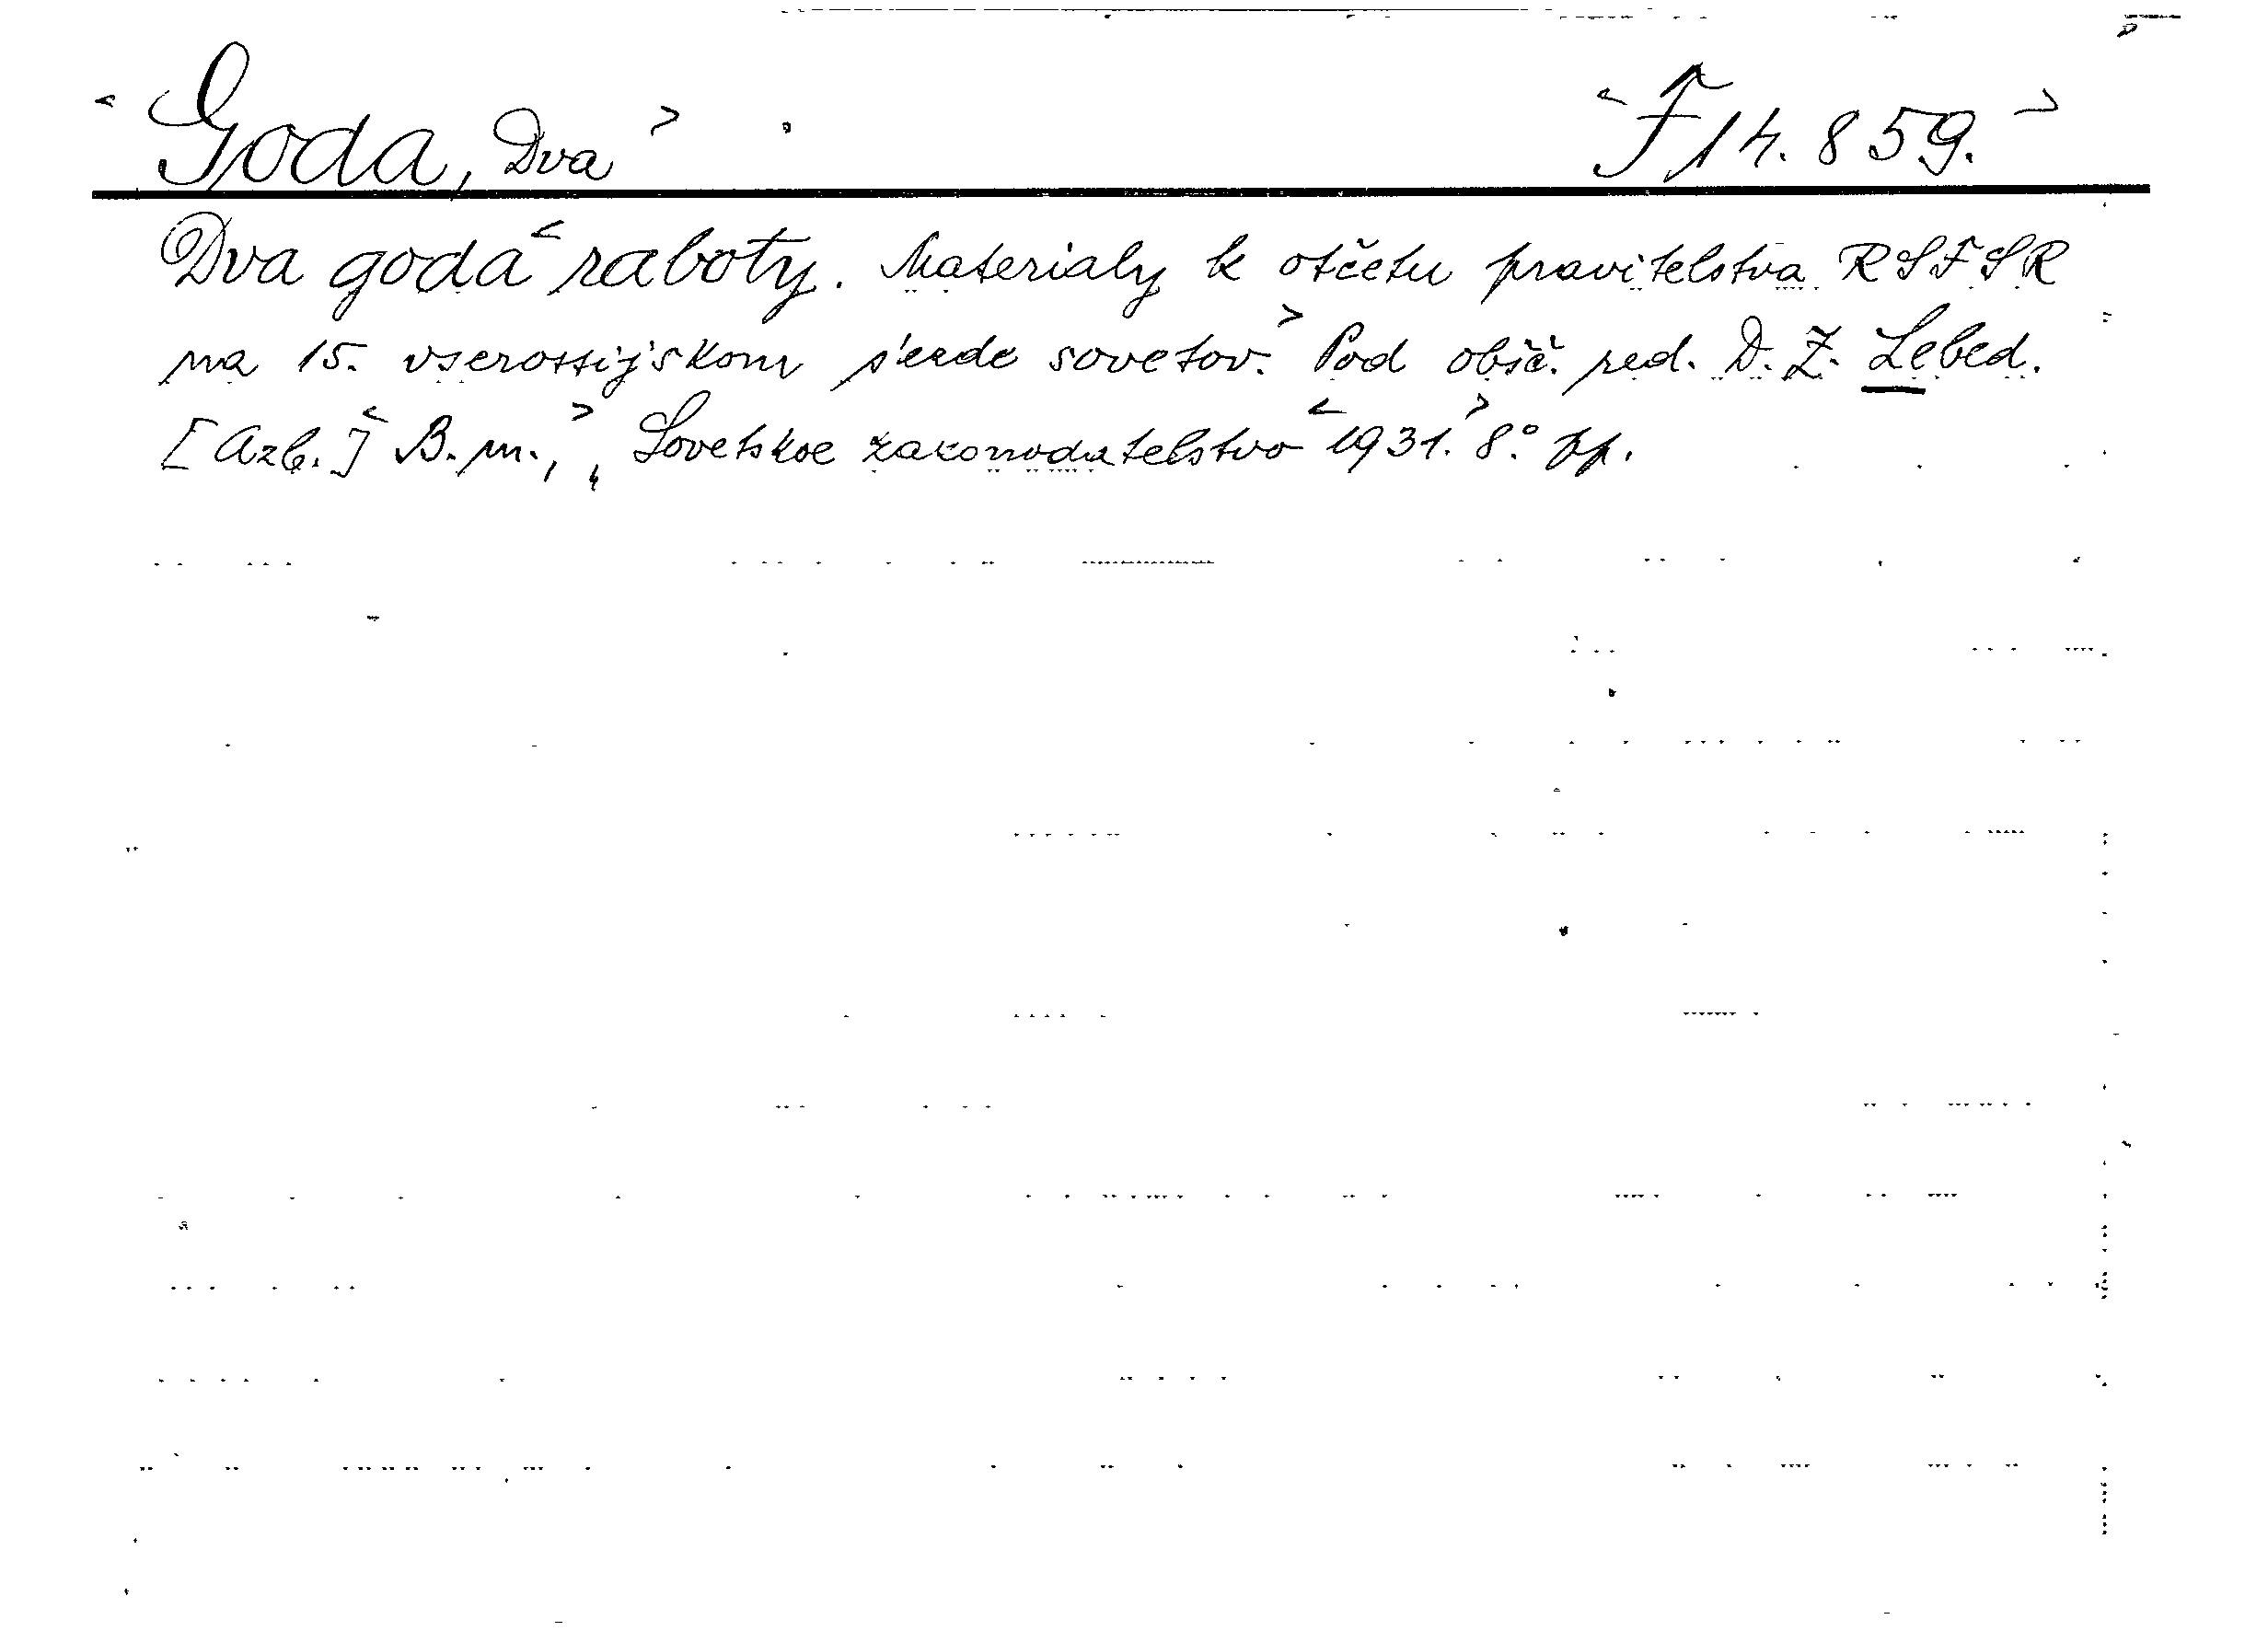 < Goda, Dva > < F 14.859. >
Dva goda < raboty. Materialy k otčetu pravitelstva RSFSR
na 15. vserossijskom s'ezde sovetov. > Pod obšč. red. D. Z. Lebed.
[Azb.] < B. m., > „Sovetskoe zakonodatelstvo < 1931. > 8.° pp.